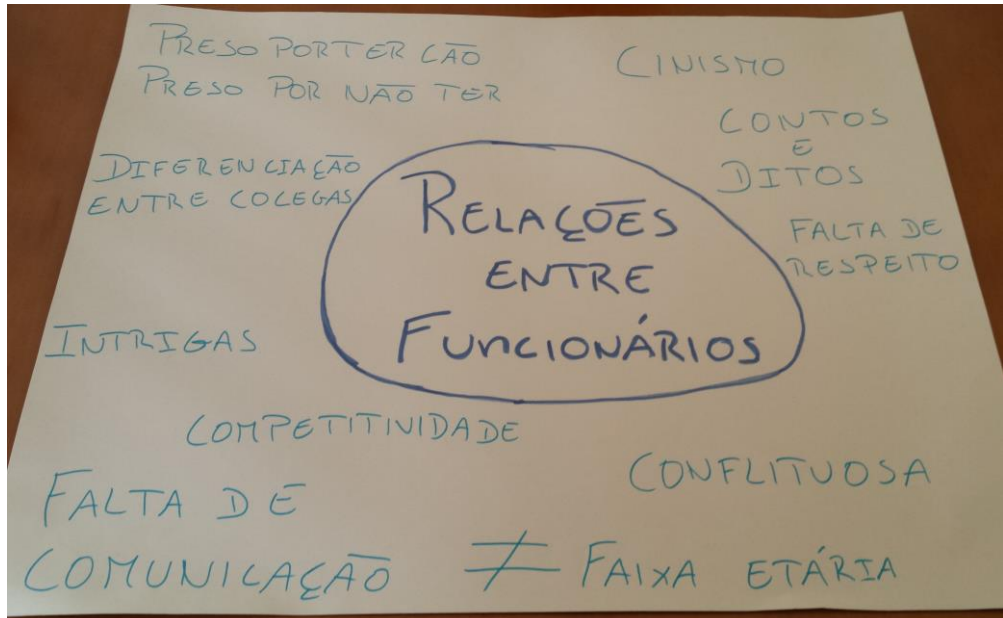 PRESO POR TER CÃO
PRESO POR NÃO TER
CINISMO
CONTOS
E
DITOS
DIFERENCIAÇÃO
ENTRE COLEGAS
RELAÇÕES
ENTRE
FUNCIONÁRIOS
FALTA DE
RESPEITO
INTRIGAS
COMPETITIVIDADE
CONFLITUOSA
FALTA DE
COMUNICAÇÃO
≠ FAIXA ETÁRIA